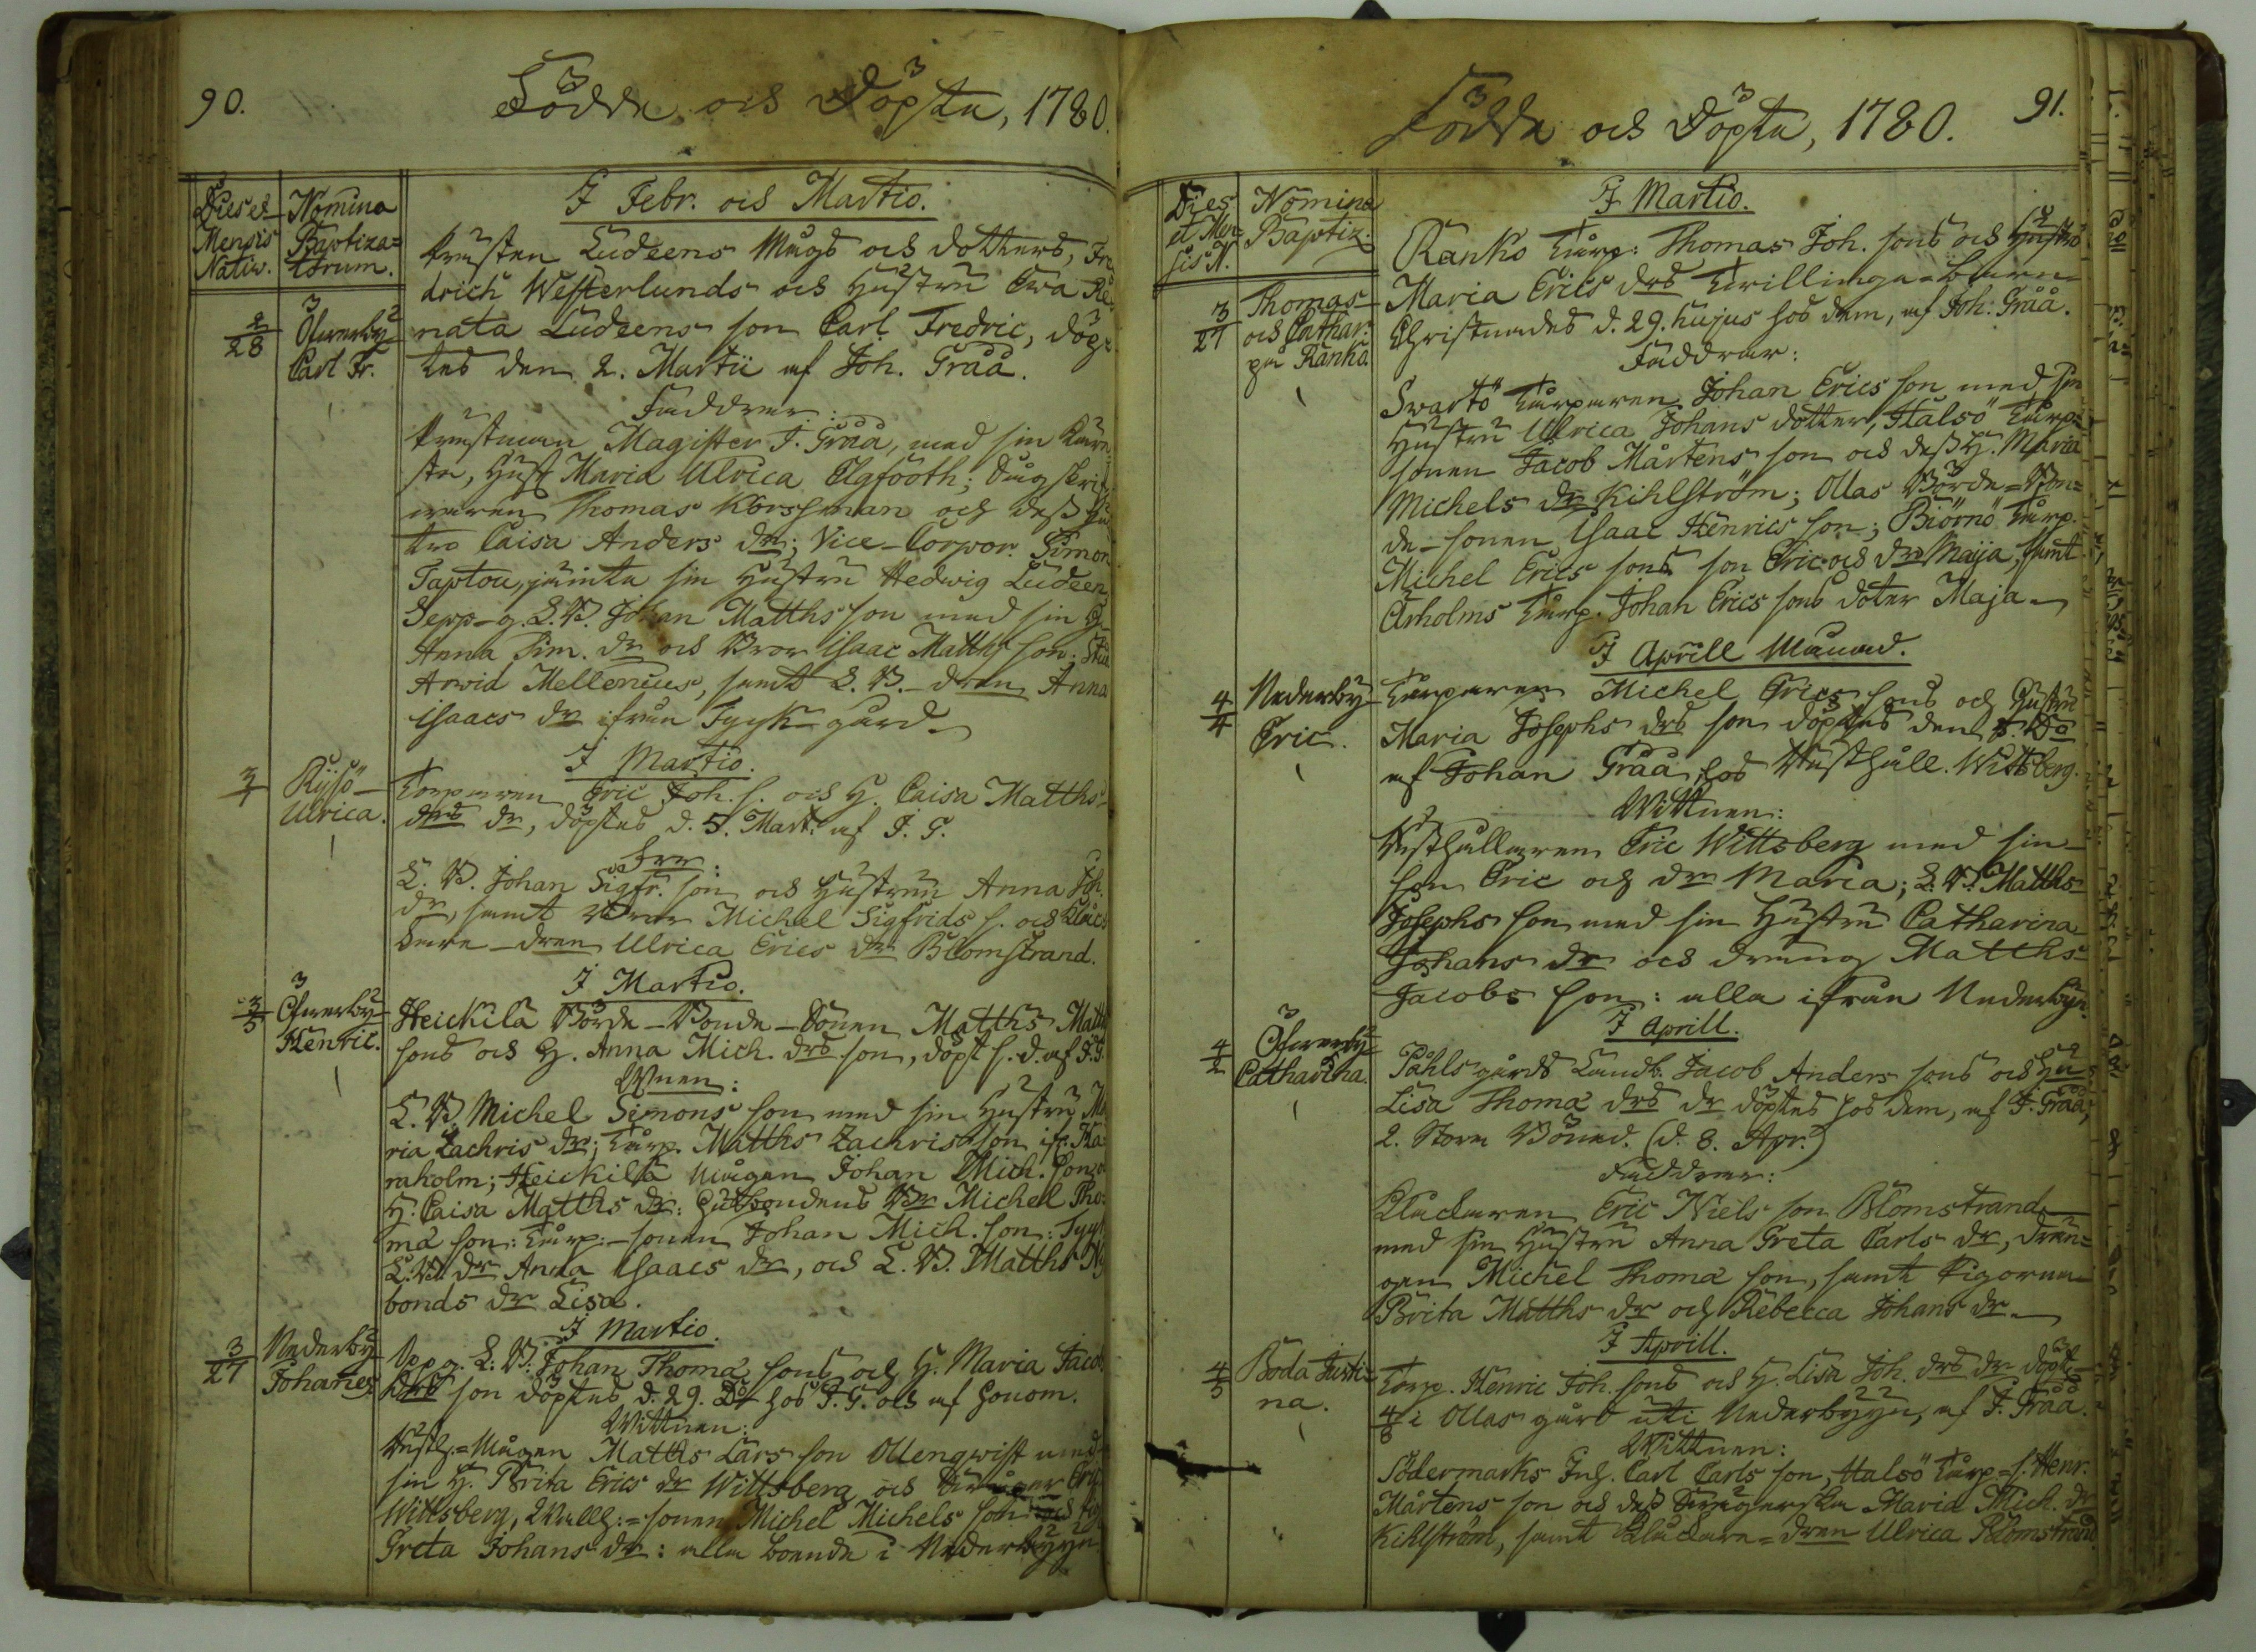 90.
Födde och Döpta, 1780.
Dies et Mensis Nativ.
Nomina Baptiza=torum.
I Febr. och Martio.
2/28
Öfwerby
Carl Fr.
Prästen Ludeens Mågs och dotters, Fre
drich Westerlunds och Hustru Ewa Re
nata Ludeens son Carl Fredric, döp=
tes den 2. Martii af Joh. Gråå.
Faddrar:
Prästman Magister J. Gråå, med sin Käre
sta, Hust Maria Ulrica Elgfooth;
Thomas Korssman och dess Hu
stro Caisa Anders dr; Vice-Corpor. Simon
Taptou, jämte sin Hustru Hedwig Ludeen
Sepp-g. L.B. Johan Matths son med sin H.
Anna Sim. dr och Bror Isaac Matths son;
Arvid Mellenius, samt L.B.-dren Anna
Isaacs dr ifrån Tyysk-gård
I Martio.
3/1
Kyssö
Ulrica.
Torparen Eric Joh. s. och H. Caisa Matths
drs dr, döptes d. 5. Mart. af J. G.
L.B. Johan Sigfr. son och Hustrun Anna Joh.
dr, samt Bror Michel Sigfrids s. och Kloc
kare-dren Ulrica Erics dr Blomstrand.
I Martio.
3/5
Öfwerby
Henric.
Heickilä Börde-Bonde-Sonen Matths Matth
sons och H. Anna Mich. drs son, döpt s.d. af J.G.
Wittnen:
L.B. Michel Simons son med sin Hustru Ma
ria Zachris dr; Torp. Matths Zachris son ifr. Ka
raholm; Heickilä mågen Johan Mich. son o
H. Caisa Matths dr: Husbondens Br Michell Tho=
mæ son: Torp:-sonen Johan Mich. son: Tyys
L.B. dr Anna Isaacs dr, och L.B. Matths Ny
bonds dr Lisa.
I Martio.
3/27
Nederby
Johannes
Opp g. L:B: Johan Thomæ sons och H. Maria Jacob
drs son döptes d. 29. Do hos J.G. och af honom.
Wittnen:
Matths Lars son Ollengwist med
sin H. Brita Erics dr Wittsberg och Eric
Wittsberg, sonen Michel Michels son och
Greta Johans dr: alla boende i Nederbyyn
91.
Födde och Döpta, 1780.
Dies et Men sis N.
Nomina Baptiz.
I Martio.
3/27
Thomas
och Cathar.
på Rankå
Ranko Torp: Thomas Joh. sons och Hustru
Maria Erics drs Twillinga-barn
Christnades d. 29. hujus hos dem, af Joh. Gråå.
Faddrar:
Swartö Torparen Johan Erics son med sin
Hustru Ulrica Johans dotter, Halsö Torp=
sonen Jacob Mårtens son och dess H. Maria
Michels dr Kihlström; Ollas Börde-Bon=
de-sonen Isaac Henrics son; Biörnö Torp.
Michel Erics sons son Eric och dr Maija, samt
Arholms Torp. Johan Erics sons doter Maja
I Aprill Månad.
4/4
Nederby
Eric.
Torparen Michel Erics sons och Hustru
Maria Josephs drs son döptes den 5. Do
af Johan Gråå, hos Rusthåll. Wittsberg.
Wittnen:
Rusthållaren Eric Wittsberg med sin
son Eric och dr Maria; L.B. Matths
Josephs son med sin Hustru Catharina
Johans dr och dräng Matths
Jacobs son: alla ifrån Nederbyn.
I Aprill.
4/2
Öfwerby
Catharina.
Påhls gårds Landb. Jacob Anders sons och Hu
Lisa Thomæ drs dr döptes hos dem, af J. Gråå,
2. Stora Böned. (d. 8. Apr.)
Faddrar:
Klockaren Eric Niels son Blomstrand
med sin Hustru Anna Greta Carls dr, drän=
gen Michel Thomæ son, samt Pigorna
Brita Matths dr och Rebecca Johans dr
I Aprill.
4/5
Boda Justi=
na.
Torp. Henric Joh. sons och H. Lisa Joh. drs dr döpt
4/8 i Ollas gård uti Nederbyyn, af J. Gråå.
Wittnen:
Södermarks Inh. Carl Carls son, Halsö Torp=s. Henr.
Mårtens son och dess Swägerska Maria Mich. dr
Kihlström, samt Klockare=dren Ulrica Blomstrand